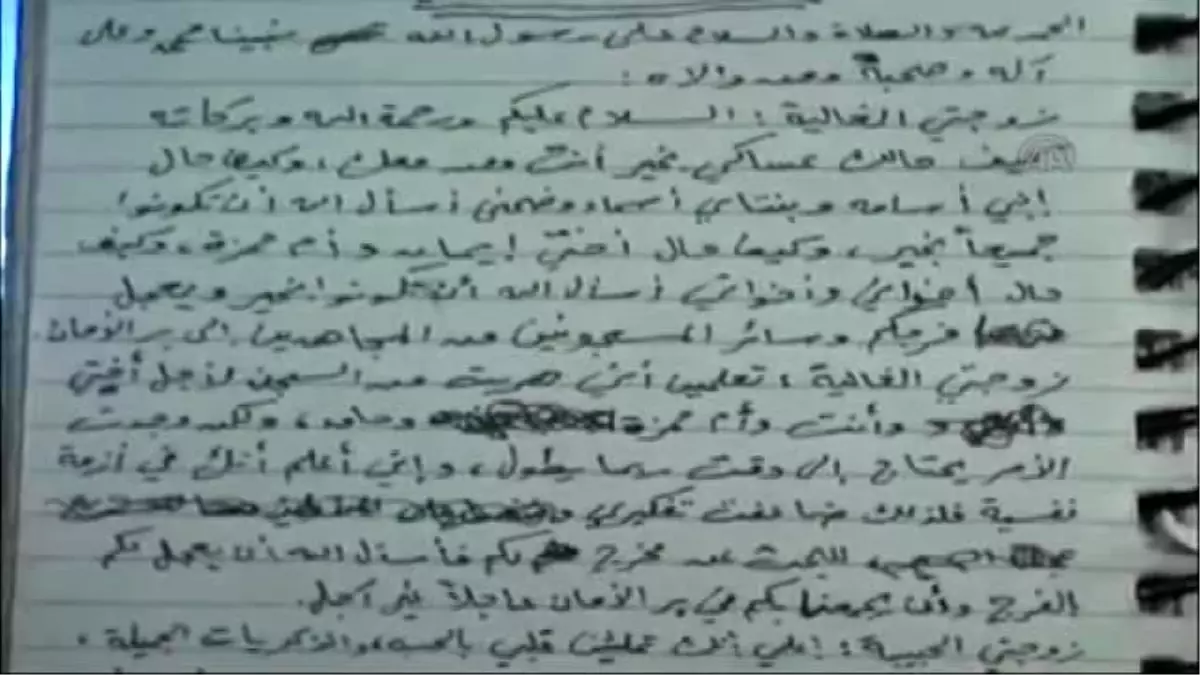 الحمد لله والصلاة والسلام على رسول الله نبينا محمد وعلى
آله وصحبه ومن والاه :
زوجتي الغالية : السلام عليكم ورحمة الله وبركاته
كيف حالك عساكي بخير أنت ومن معك ، وكيف حال
إبني أسامه وبنتاي أسماء وضحى أسأل الله أن تكونوا
جميعاً بخير ، وكيف حال أختي إيمان وأم حمزة ، وكيف
حال أخواني وأخواتي أسأل الله أن تكونوا بخير ويعجل
فرجكم وسائر المسجونين من المجاهدين إلى بر الأمان.
زوجتي الغالية ، تعلمين أني هربت من السجن لأجل أختي
وأنت وأم حمزة وحامد ، ولكن وجدت
الأمر يحتاج إلى وقت ربما يطول ، وإني أعلم أنك في أزمة
نفسية فلذلك ضاعفت تفكيري
للبحث عن مخرج لكم فأسئل الله أن يعجل لكم
الفرج وأن يجمعنا بكم في بر الأمان عاجلاً غير آجل.
زوجتي الحبيبة : إعلمي أنك تملئين قلبي بالحب والذكريات الجميلة ،